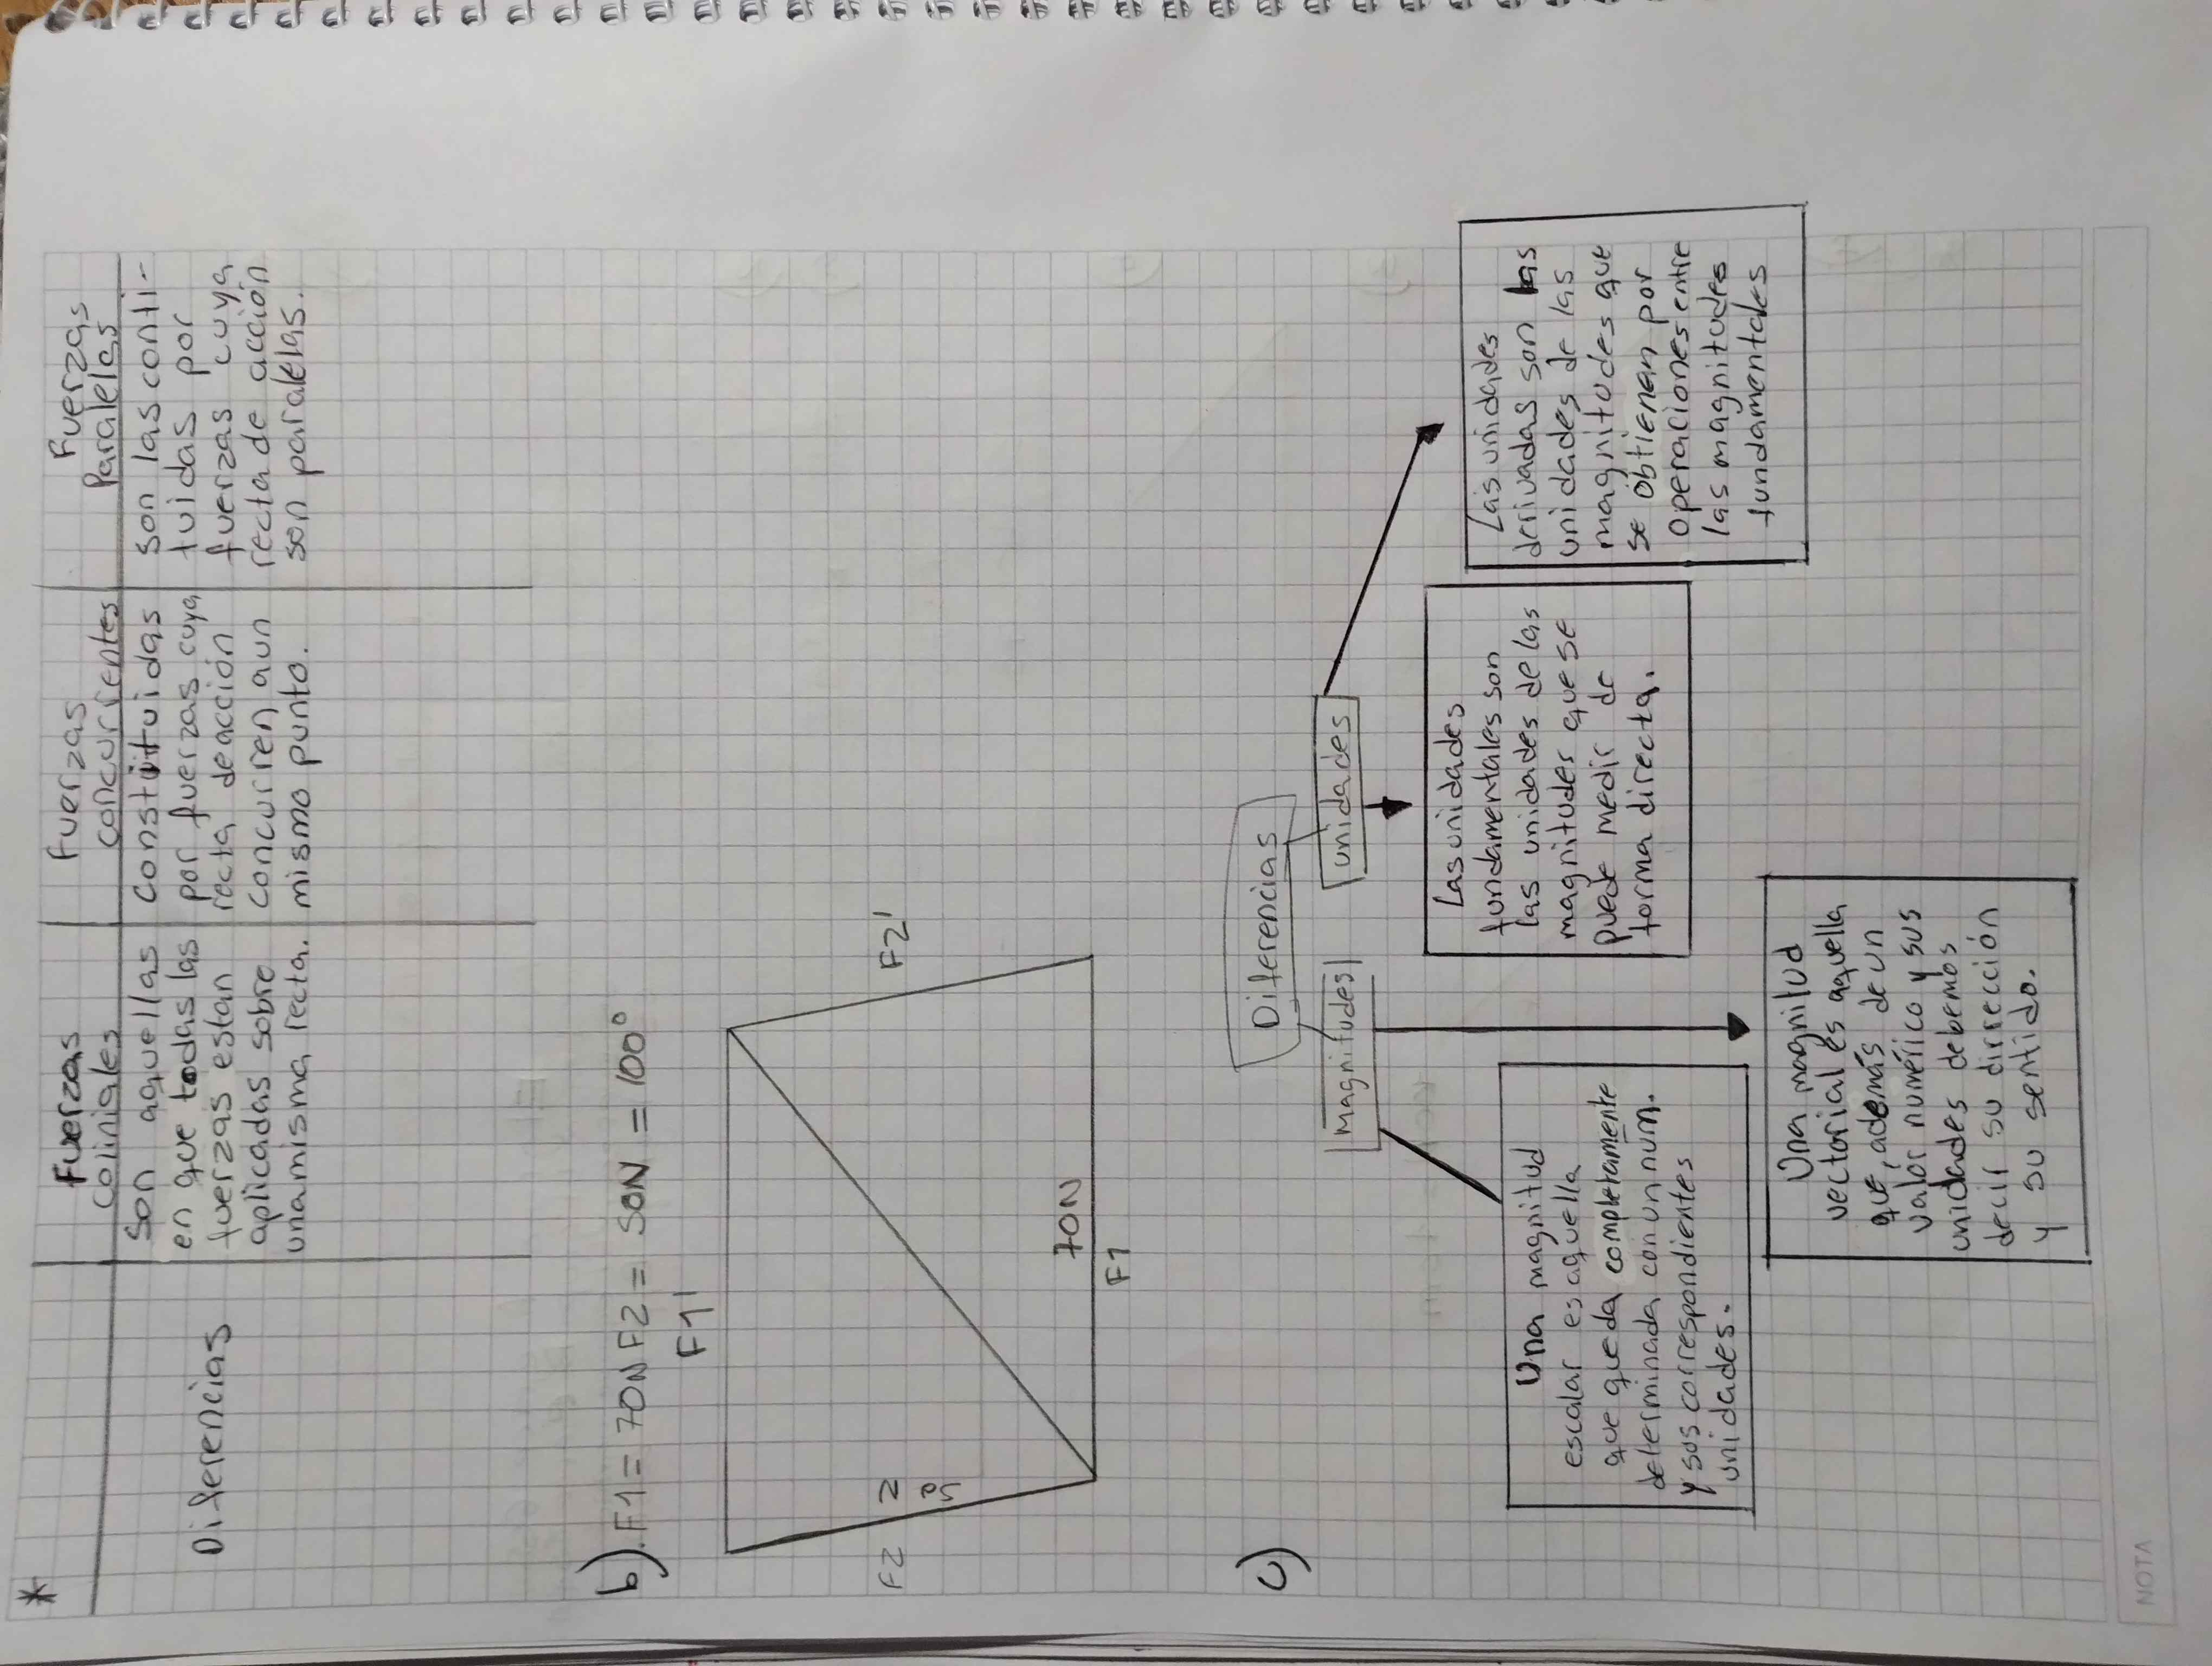 *
Fuerzas
coliniales
Fuerzas
concurrientes
Fuerzas
Paralelas
Diferencias
Son aquellas
en que todas las
fuerzas estan
aplicadas sobre
una misma recta.
Constituidas
por fuerzas cuya
recta de acción
concurren a un
mismo punto.
son las conti-
tuidas por
fuerzas cuya
recta de acción
son paralelas.
b). F1 = 70N F2 = 50N = 100°
F1'
F2
50
N
F2'
70N
F1
c)
Diferencias
Magnitudes
unidades
Una magnitud
escalar es aquella
que queda completamente
determinada con un num.
y sus correspondientes
unidades.
Una magnitud
vectorial es aquella
que, además de un
valor numérico y sus
unidades debemos
decir su dirrección
y su sentido.
Las unidades
fundamentales son
las unidades de las
magnitudes que se
puede medir de
forma directa.
Las unidades
derivadas son las
unidades de las
magnitudes que
se obtienen por
operaciones entre
las magnitudes
fundamentales
NOTA